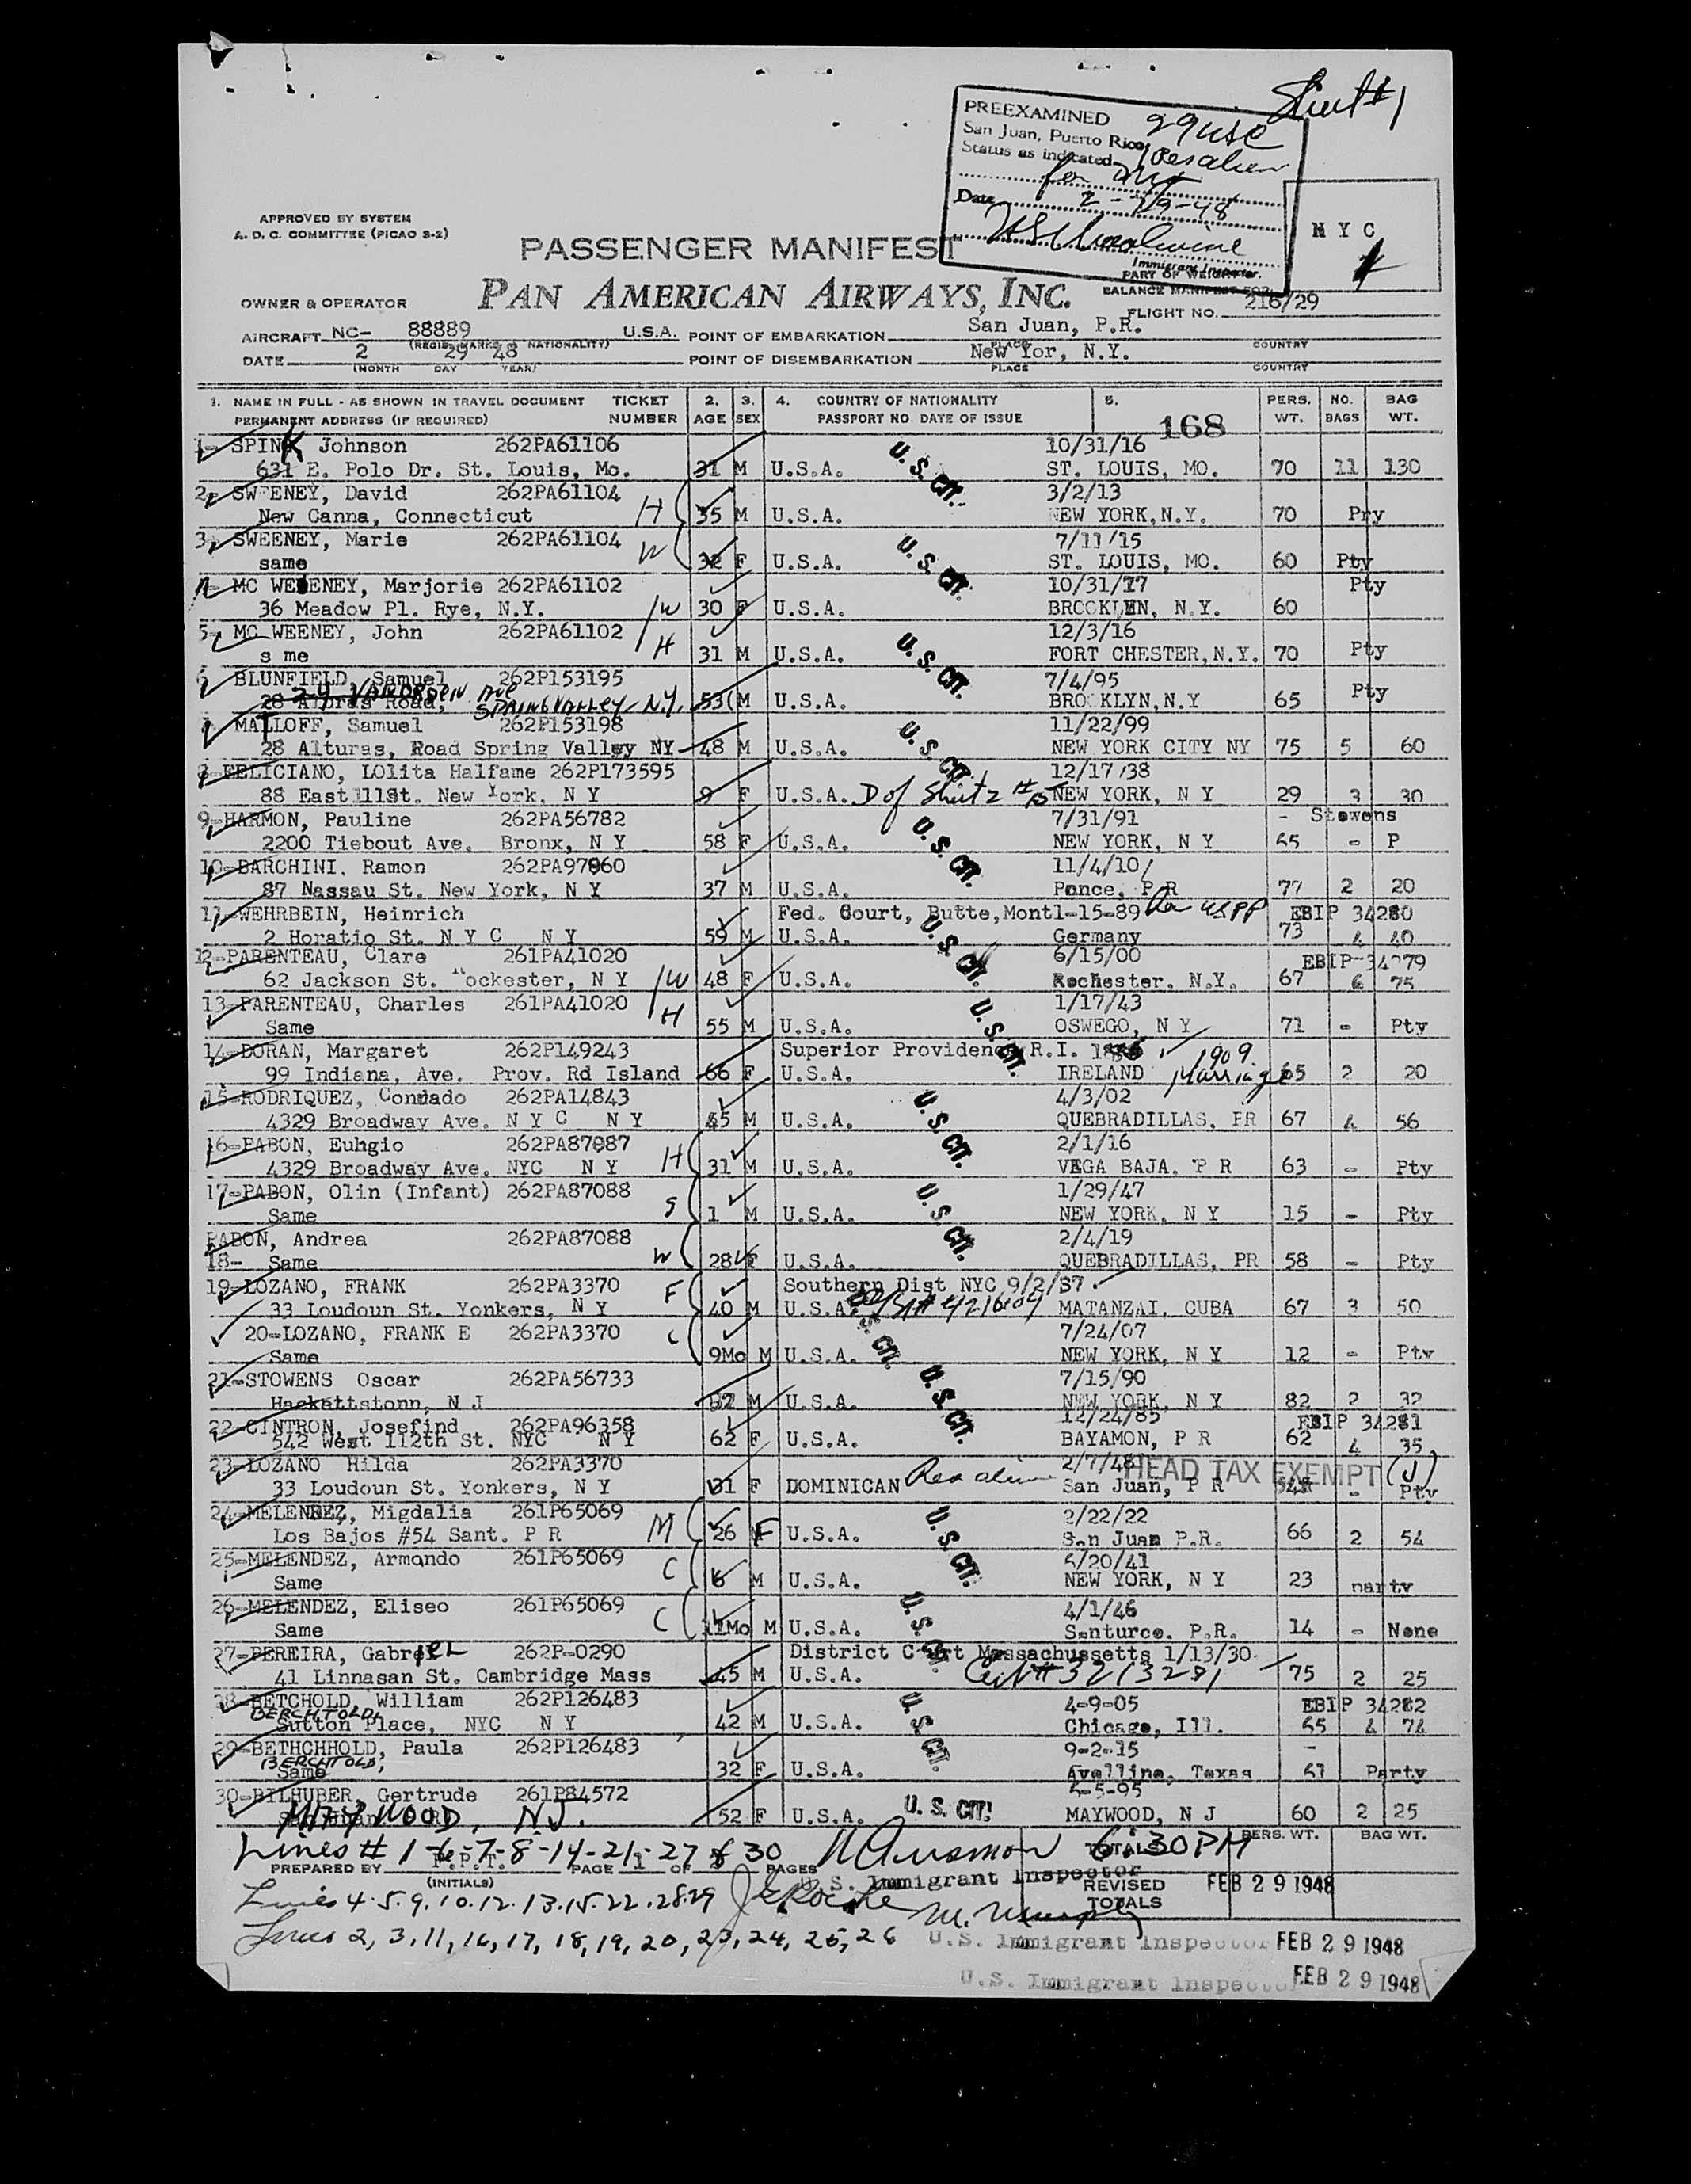 Sheet #1
PREEXAMINED
San Juan, Puerto Rico 29 USC
Status as indicated 1 Res alien
for
Date 2-29-48
Immigrant Inspector.
N Y C
APPROVED BY SYSTEM
A. D. C. COMMITTEE (PICAO S-2)
PASSENGER MANIFEST
PART OF WEIGHT
BALANCE MANIFEST FOR
OWNER & OPERATOR PAN AMERICAN AIRWAYS, INC.
FLIGHT NO. 216/29
AIRCRAFT NC- 88889 U.S.A. POINT OF EMBARKATION San Juan, P.R.
(REGIS. MARKS & NATIONALITY) PLACE COUNTRY
DATE 2 29 48 POINT OF DISEMBARKATION New Yor, N.Y.
(MONTH DAY YEAR) PLACE COUNTRY
1. NAME IN FULL - AS SHOWN IN TRAVEL DOCUMENT TICKET 2. 3. 4. COUNTRY OF NATIONALITY 5. PERS. NO. BAG
PERMANENT ADDRESS (IF REQUIRED) NUMBER AGE SEX PASSPORT NO. DATE OF ISSUE 168 WT. BAGS WT.
1- SPINK Johnson 262PA61106 10/31/16
631 E. Polo Dr. St. Louis, Mo. 31 M U.S.A. U.S. CIT. ST. LOUIS, MO. 70 11 130
2- SWEENEY, David 262PA61104 3/2/13
New Canna, Connecticut H 35 M U.S.A. NEW YORK,N.Y. 70 Pry
3- SWEENEY, Marie 262PA61104 7/11/15
same W 32 F U.S.A. U.S. CIT. ST. LOUIS, MO. 60 Pty
4- MC WEEENEY, Marjorie 262PA61102 10/31/17 Pty
36 Meadow Pl. Rye, N.Y. W 30 F U.S.A. BROOKLYN, N.Y. 60
5- MC WEENEY, John 262PA61102 12/3/16
s me H 31 M U.S.A. U.S. CIT. FORT CHESTER,N.Y. 70 Pty
6 BLUNFIELD, Samuel 262P153195 7/4/95
28 Alturas Road, 24 Ave SPRING VALLEY - N.Y. 53 M U.S.A. BROOKLYN,N.Y 65 Pty
7 MATLOFF, Samuel 262P153198 11/22/99
28 Alturas, Road Spring Valley NY 48 M U.S.A. U.S. CIT. NEW YORK CITY NY 75 5 60
8-FELICIANO, LOlita Halfame 262P173595 12/17/38
88 East 111St. New York. N Y 9 F U.S.A. D of Sheet 2 # 15 NEW YORK, N Y 29 3 30
9-HARMON, Pauline 262PA56782 7/31/91 - Stowens
2200 Tiebout Ave. Bronx, N Y 58 F U.S.A. U.S. CIT. NEW YORK, N Y 65 - P
10-BARCHINI. Ramon 262PA97060 11/4/10
87 Nassau St. New York, N Y 37 M U.S.A. Ponce, P R 77 2 20
11-WEHRBEIN, Heinrich Fed. Court, Butte,Mont1-15-89 USPP EBIP 34280
2 Horatio St. N Y C N Y 59 M U.S.A. U.S. CIT. Germany 73 4 40
12-PARENTEAU, Clare 261PA41020 6/15/00 EBIP-34279
62 Jackson St. ockester, N Y W 48 F U.S.A. Rochester. N.Y. 67 6 75
13-PARENTEAU, Charles 261PA41020 1/17/43
Same H 55 M U.S.A. U.S. CIT. OSWEGO, N Y 71 - Pty
14-DORAN, Margaret 262P149243 Superior Providence, R.I. 1909.
99 Indiana, Ave. Prov. Rd Island 66 F U.S.A. IRELAND Marriage 65 2 20
15-RODRIQUEZ, Conrado 262PA14843 4/3/02
4329 Broadway Ave. N Y C N Y 45 M U.S.A. U.S. CIT. QUEBRADILLAS, PR 67 4 56
16-PABON, Euhgio 262PA87087 2/1/16
4329 Broadway Ave. NYC N Y H 31 M U.S.A. VEGA BAJA. P R 63 - Pty
17-PABON, Olin (Infant) 262PA87088 1/29/47
Same S 1 M U.S.A. U.S. CIT. NEW YORK, N Y 15 - Pty
PABON, Andrea 262PA87088 2/4/19
18- Same W 28 F U.S.A. QUEBRADILLAS, PR 58 - Pty
19-LOZANO, FRANK 262PA3370 F Southern Dist NYC 9/2/37
33 Loudoun St. Yonkers, N Y 40 M U.S.A. MATANZAI, CUBA 67 3 50
20-LOZANO, FRANK E 262PA3370 C 7/24/07
Same 9Mo M U.S.A. U.S. CIT. NEW YORK, N Y 12 - Pty
21-STOWENS Oscar 262PA56733 7/15/90
Hackettstonn, N J 57 M U.S.A. U.S. CIT. NEW YORK, N Y 82 2 32
22-CINTRON, Josefind 262PA96358 12/24/85 EBIP 34281
542 West 112th St. NYC N Y 62 F U.S.A. BAYAMON, P R 62 4 35
23-LOZANO Hilda 262PA3370 2/7/48 HEAD TAX EXEMPT (J)
33 Loudoun St. Yonkers, N Y 31 F DOMINICAN Res alien San Juan, P R - Pty
24-MELENDEZ, Migdalia 261P65069 2/22/22
Los Bajos #54 Sant. P R M 26 F U.S.A. U.S. CIT. San Juan P.R. 66 2 54
25-MELENDEZ, Armando 261P65069 6/20/41
Same C 6 M U.S.A. NEW YORK, N Y 23 party
26-MELENDEZ, Eliseo 261P65069 4/1/46
Same C 11Mo M U.S.A. U.S. CIT. Santurce. P.R. 14 - None
27-PEREIRA, GabrIEL 262P-0290 District Court Massachussetts 1/13/30
41 Linnasan St. Cambridge Mass 45 M U.S.A. Cert # 3213281 75 2 25
28-BETCHOLD, William 262P126483 4-9-05 EBIP 34282
BERCHTOLD,
Sutton Place, NYC N Y 42 M U.S.A. U.S. CIT. Chicago, Ill. 65 4 74
29-BETHCHHOLD, Paula 262P126483 9-2-15 -
BERCHTOLD,
Same 32 F U.S.A. Avelline, Texas 61 Party
30-BILHUBER, Gertrude 261P84572 6-5-95
MAYWOOD, N.J. 52 F U.S.A. U.S. CIT! MAYWOOD, N J 60 2 25
Lines # 1-6-7-8-14-21-27 & 30 6:30 PM TOTALS PERS. WT. BAG WT.
PREPARED BY P.P.T. PAGE 1 OF PAGES
(INITIALS) U.S. Immigrant Inspector REVISED TOTALS FEB 29 1948
Lines 4.5.9.10.12.13.15.22.28.29
Lines 2, 3, 11, 16, 17, 18, 19, 20, 23, 24, 25, 26 U.S. Immigrant Inspector FEB 29 1948
U.S. Immigrant Inspector FEB 29 1948